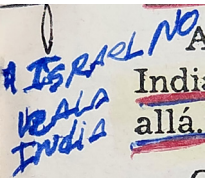 A ISRAEL NO
VE A LA
INDIA
A
India
allá.